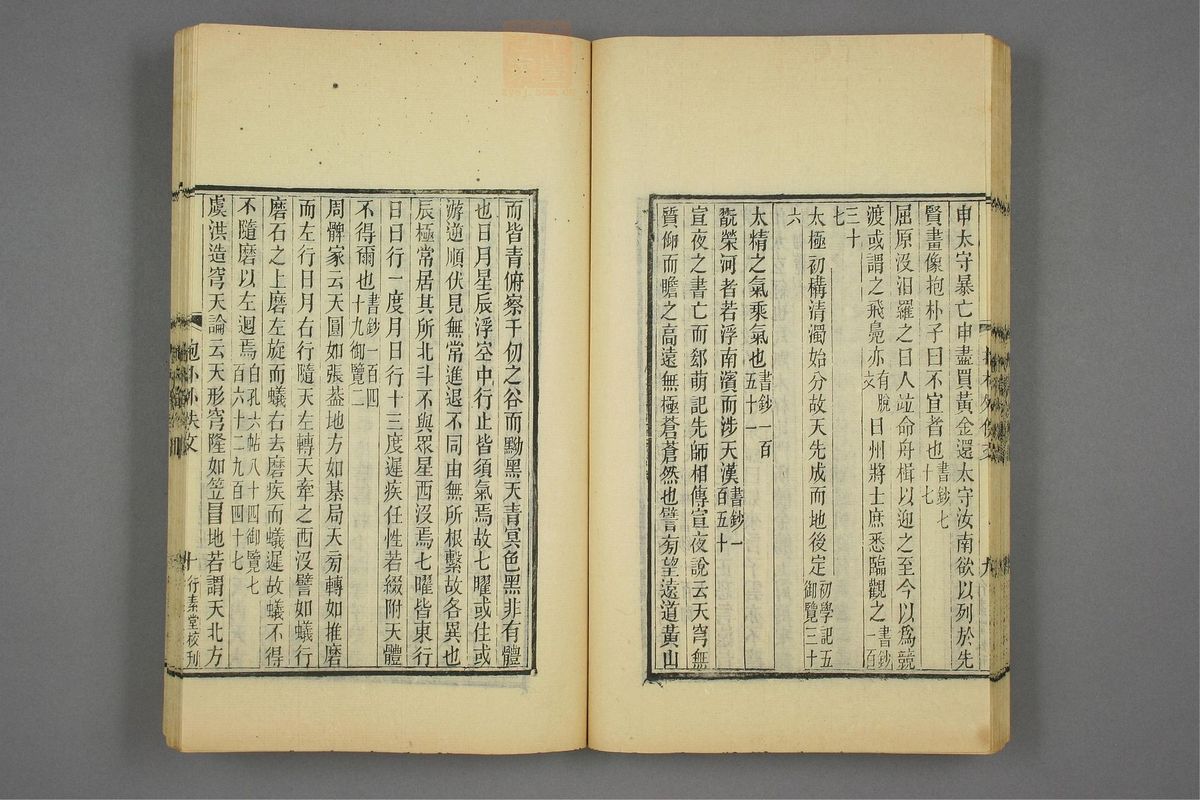 申太守暴亡申盡買黃金還太守汝南欲以列於先
賢畫像抱朴子曰不宜者也書鈔七十七
屈原沒汨羅之日人竝命舟楫以迎之至今以爲競
渡或謂之飛鳧亦有脫文日州將士庶悉臨觀之書鈔一百
三十七
太極初構清濁始分故天先成而地後定初學記五御覽三十
六
太精之氣乘氣也書鈔一百五十一
翫榮河者若浮南濱而涉天漢書鈔一百五十
宣夜之書亡而郄萌記先師相傳宣夜說云天穹無
質仰而瞻之高遠無極蒼蒼然也譬旁望遠道黃山
而皆青俯察千仞之谷而黝黑天青冥色黑非有體
也日月星辰浮空中行止皆須氣焉故七曜或住或
游逆順伏見無常進退不同由無所根繫故各異也
辰極常居其所北斗不與眾星西沒焉七曜皆東行
日日行一度月日行十三度遲疾任性若綴附天體
不得爾也書鈔一百四十九御覽二
周髀家云天圓如張蓋地方如棊局天旁轉如推磨
而左行日月右行隨天左轉天牽之西沒譬如蟻行
磨石之上磨左旋而蟻右去磨疾而蟻遲故蟻不得
不隨磨以左迴焉白孔六帖八十四御覽七百六十二九百四十七
虞洪造穹天論云天形穹隆如笠冒地若謂天北方
十
行素堂校刊